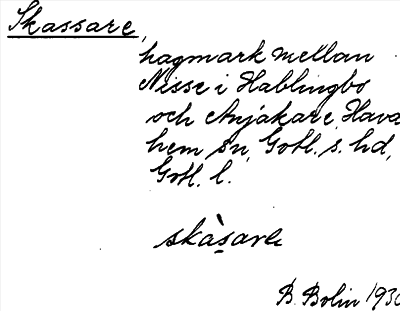 Skassare,
hagmark mellan
Nisse i Hablingbo
och Anjäkare, Hava
hem sn, Gotl. s. hd,
Gotl. l.
skàsare
B. Bolin 1930